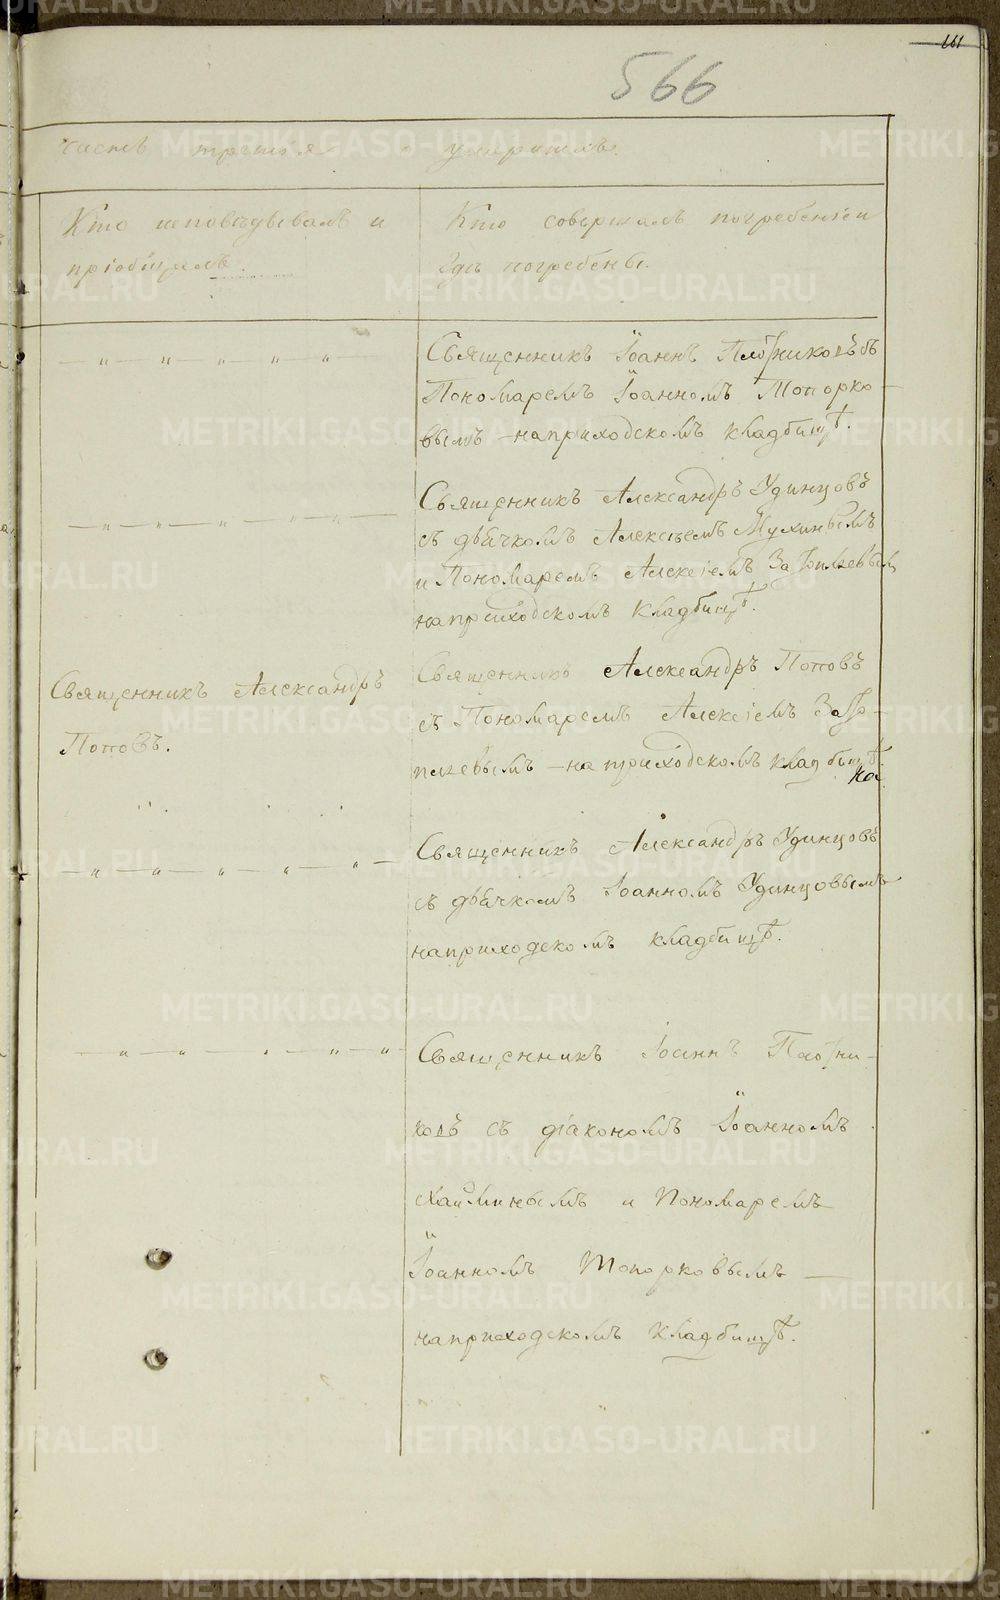 161
566
часть третія о умершихъ.
Кто исповѣдывалъ и
пріобщалъ.
Кто совершалъ погребеніеи
гдѣ погребены.
Священникъ Іоаннъ Плотниковъ съ
Пономаремъ Іоанномъ Топорко-
вымъ – на приходскомъ кладбищѣ.
Священникъ Александръ Удинцовъ
съ дьячкомъ Алексѣемъ Мухинымъ
и Пономаремъ Алексіемъ
на приходскомъ кладбищѣ.
Священникъ Александръ
Поповъ.
Священникъ Александръ Поповъ
съ Пономаремъ Алексіемъ
– на приходскомъ кладбищѣ.
на
Священникъ Александръ Удинцовъ
съ дьячкомъ Іоанномъ Удинцовымъ
на приходскомъ кладбищѣ.
Священникъ Іоаннъ Плотни-
ковъ съ діакономъ Іоанномъ
и Пономаремъ
Іоанномъ Топорковымъ –
на приходскомъ кладбищѣ.
METRIKI.GASO-URAL.RU